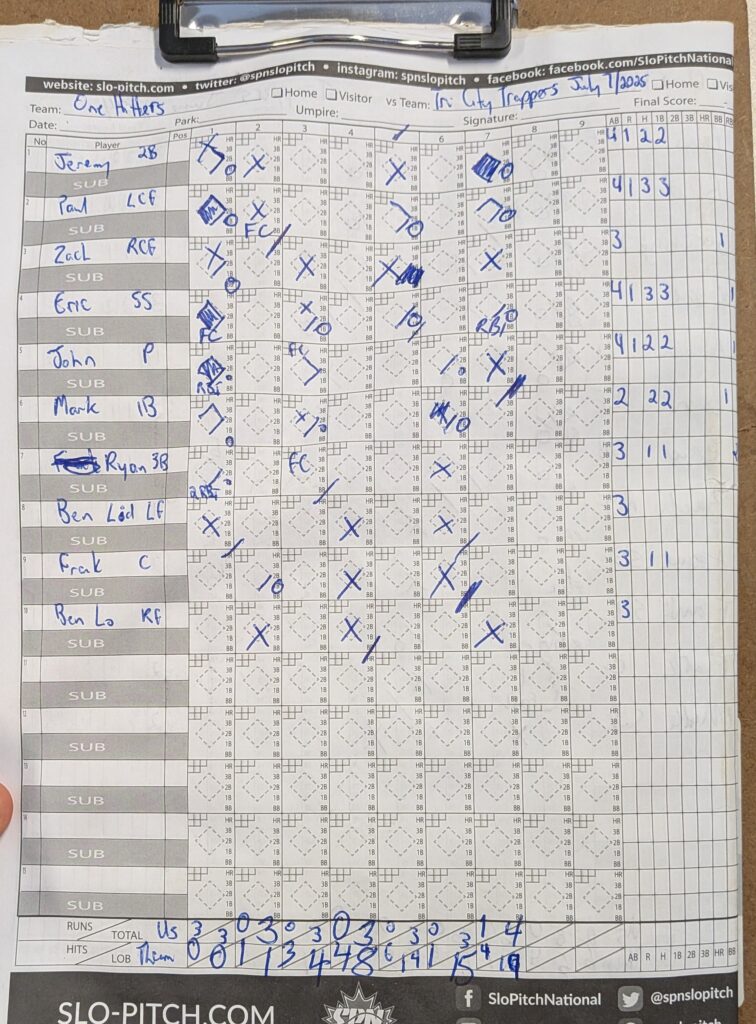 website: slo-pitch.com • twitter: @spnslopitch • instagram: spnslopitch • facebook: facebook.com/SloPitchNational
Team: One Hitters Home Visitor vs Team: Tri City Trappers July 7/2025 Home Vis
Date: Park: Umpire: Signature: Final Score:
No Player Pos 2 3 6 7 8 9 AB R H 1B 2B 3B HR BB
1 Jeremy 2B 4 1 2 2
SUB
2 Paul LCF 4 1 3 3
SUB FC
3 Zach RCF 3 1
SUB
4 Eric SS 4 1 3 3
SUB FC RBI
5 John P FC 4 1 2 2
SUB RBI
6 Mark 1B 2 2 2 1
SUB
7 Ryan 3B FC 3 1 1
SUB 2 RBI
8 Ben Lod LF 3
SUB
9 Frak C 3 1 1
SUB
10 Ben Lo RF 3
SUB
11
SUB
12
SUB
13
SUB
14
SUB
15
SUB
RUNS TOTAL Us 3 3 0 3 0 3 0 3 0 3 0 3 1 4
HITS LOB Them 0 0 1 1 3 4 4 8 6 14 1 15 4 19 AB R H 1B 2B 3B HR BB
SLO-PITCH.COM SPN SloPitchNational @spnslopitch